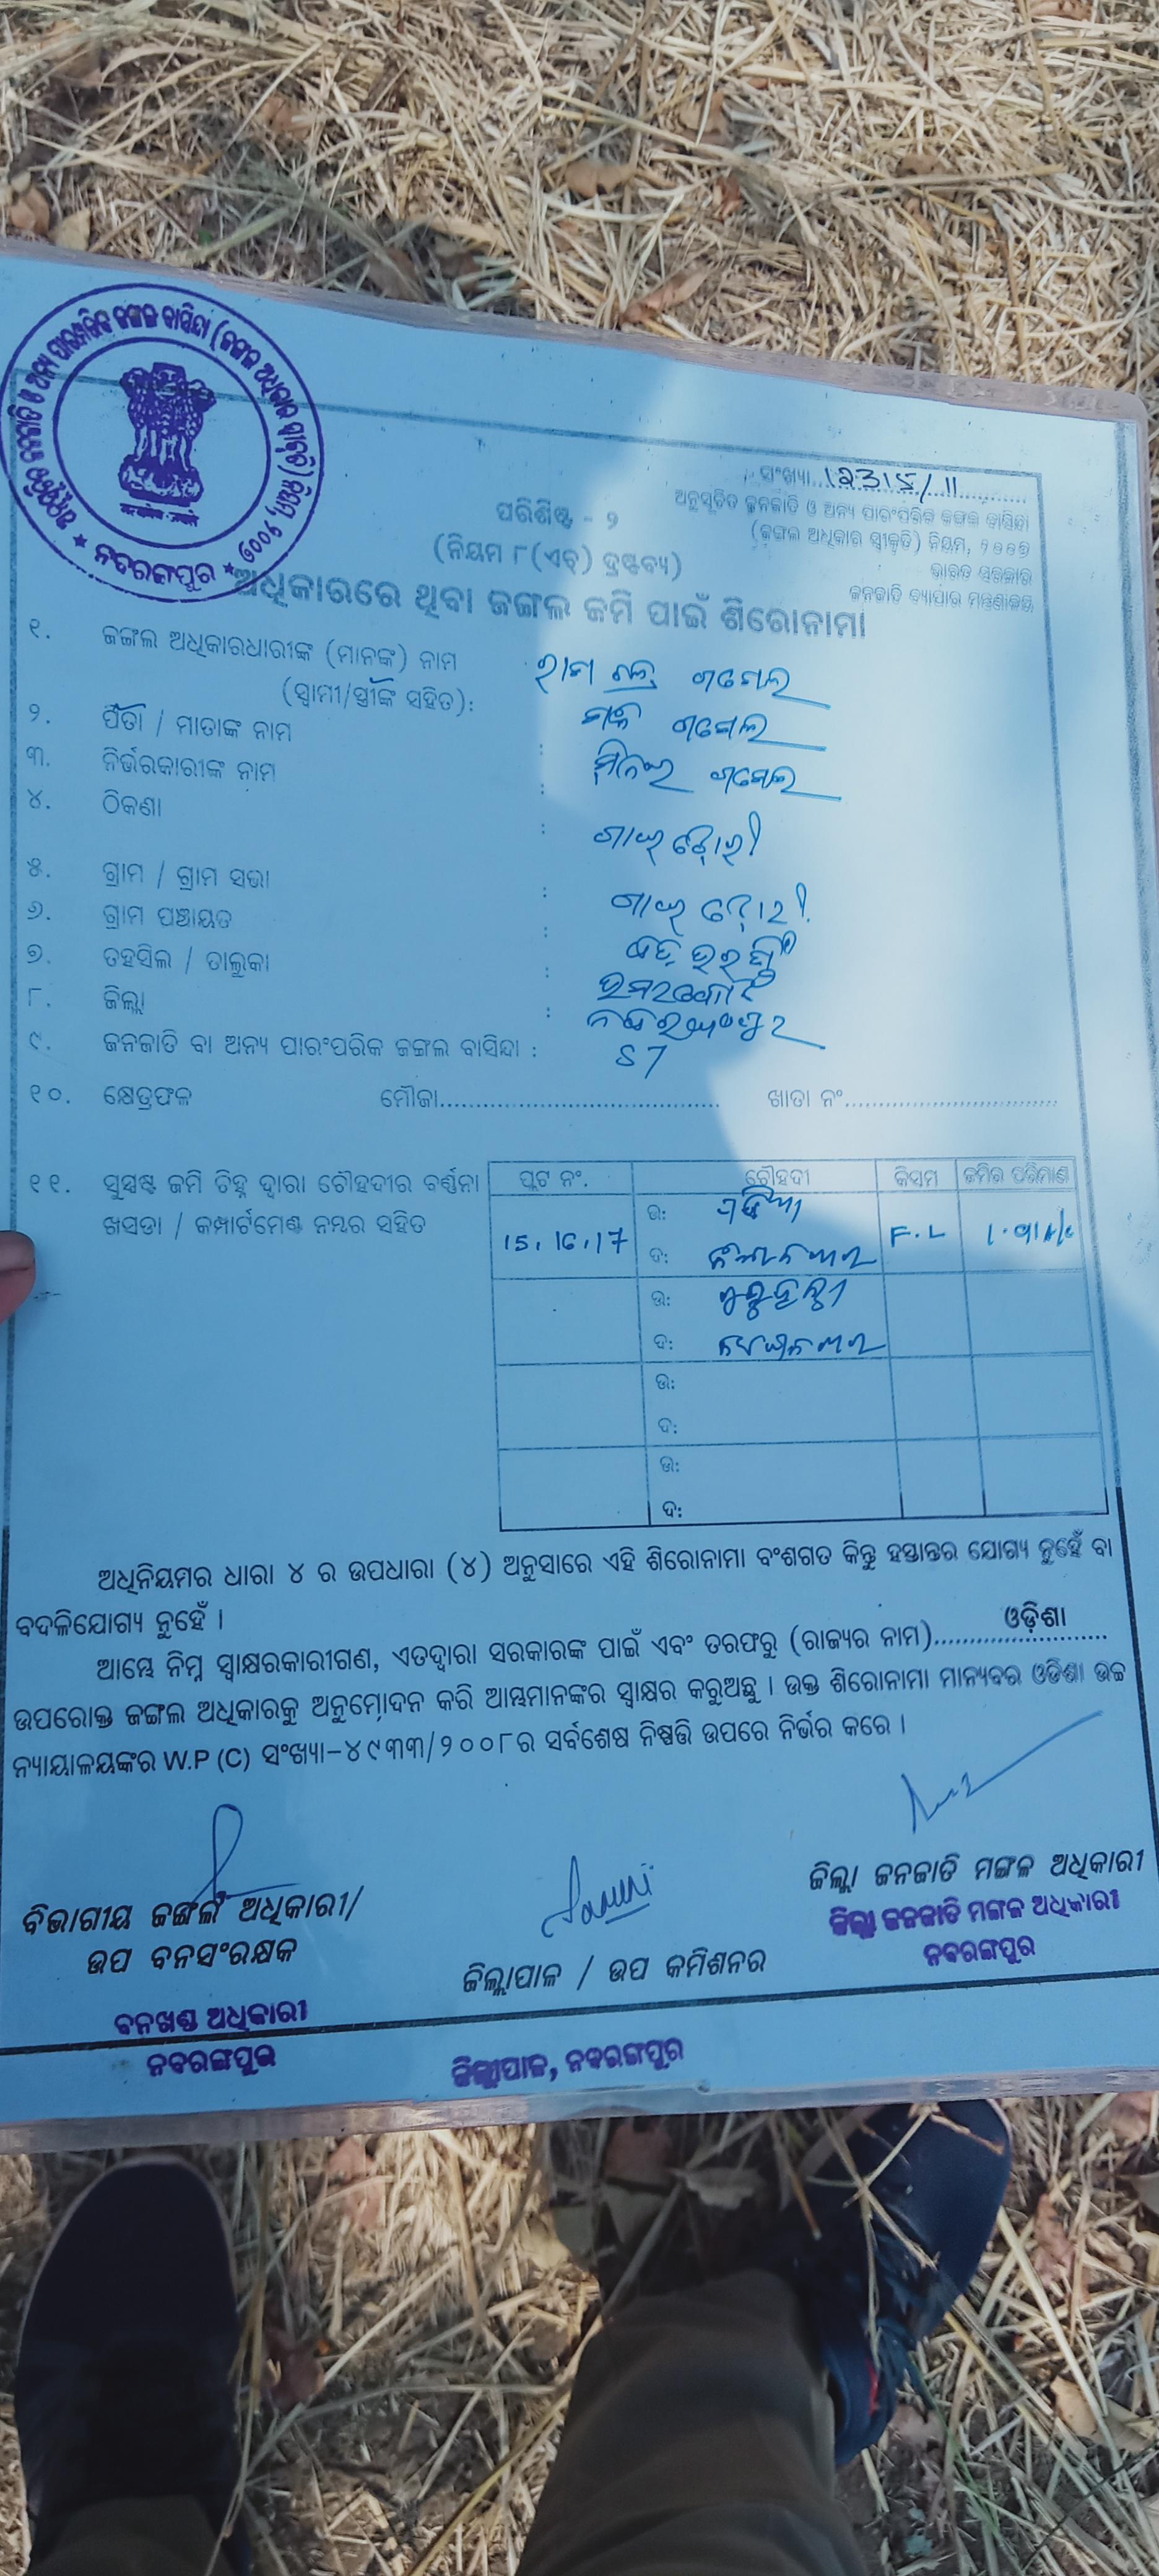 ସଂଖ୍ୟା 12315/11
ଅନୁସୂଚିତ ଜନଜାତି ଓ ଅନ୍ୟ ପାରଂପରିକ ଜଙ୍ଗଲ ବାସିନ୍ଦା
(ଜଙ୍ଗଲ ଅଧିକାର ସ୍ୱୀକୃତି) ନିୟମ, ୨୦୦୭
ଭାରତ ସରକାର
ଜନଜାତି ବ୍ୟାପାର ମନ୍ତ୍ରଣାଳୟ
ନବରଙ୍ଗପୁର
ପରିଶିଷ୍ଟ - ୨
(ନିୟମ ୮(ଏଚ୍) ଦ୍ରଷ୍ଟବ୍ୟ)
ଅଧିକାରରେ ଥିବା ଜଙ୍ଗଲ ଜମି ପାଇଁ ଶିରୋନାମା
୧. ଜଙ୍ଗଲ ଅଧିକାରଧାରୀଙ୍କ (ମାନଙ୍କ) ନାମ
(ସ୍ୱାମୀ/ସ୍ତ୍ରୀଙ୍କ ସହିତ): ରାମ ଚନ୍ଦ୍ର
୨. ପିତା / ମାତାଙ୍କ ନାମ :
୩. ନିର୍ଭରକାରୀଙ୍କ ନାମ :
୪. ଠିକଣା :
୫. ଗ୍ରାମ / ଗ୍ରାମ ସଭା :
୬. ଗ୍ରାମ ପଞ୍ଚାୟତ :
୭. ତହସିଲ / ତାଲୁକା : ଉମରକୋଟ
୮. ଜିଲ୍ଲା : ନବରଙ୍ଗପୁର
୯. ଜନଜାତି ବା ଅନ୍ୟ ପାରଂପରିକ ଜଙ୍ଗଲ ବାସିନ୍ଦା : ST
୧୦. କ୍ଷେତ୍ରଫଳ ମୌଜା........ ଖାତା ନଂ........
୧୧. ସୁସ୍ପଷ୍ଟ ଜମି ଚିହ୍ନ ଦ୍ୱାରା ଚୌହଦୀର ବର୍ଣ୍ଣନା
ଖସଡା / କମ୍ପାର୍ଟମେଣ୍ଟ ନମ୍ବର ସହିତ
ପ୍ଲଟ ନଂ. ଚୌହଦୀ କିସମ ଜମିର ପରିମାଣ
15, 16, 17 ଉ: F.L
ଦ:
ଉ:
ଦ:
ଉ:
ଦ:
ଉ:
ଦ:
ଅଧିନିୟମର ଧାରା ୪ ର ଉପଧାରା (୪) ଅନୁସାରେ ଏହି ଶିରୋନାମା ବଂଶଗତ କିନ୍ତୁ ହସ୍ତାନ୍ତର ଯୋଗ୍ୟ ନୁହେଁ ବା
ବଦଳିଯୋଗ୍ୟ ନୁହେଁ ।
ଆମ୍ଭେ ନିମ୍ନ ସ୍ୱାକ୍ଷରକାରୀଗଣ, ଏତଦ୍ୱାରା ସରକାରଙ୍କ ପାଇଁ ଏବଂ ତରଫରୁ (ରାଜ୍ୟର ନାମ)....ଓଡ଼ିଶା....
ଉପରୋକ୍ତ ଜଙ୍ଗଲ ଅଧିକାରକୁ ଅନୁମୋଦନ କରି ଆମ୍ଭମାନଙ୍କର ସ୍ୱାକ୍ଷର କରୁଅଛୁ । ଉକ୍ତ ଶିରୋନାମା ମାନ୍ୟବର ଓଡିଶା ଉଚ୍ଚ
ନ୍ୟାୟାଳୟଙ୍କର W.P (C) ସଂଖ୍ୟା-୪୯୩୩/୨୦୦୮ର ସର୍ବଶେଷ ନିଷ୍ପତ୍ତି ଉପରେ ନିର୍ଭର କରେ ।
ବିଭାଗୀୟ ଜଙ୍ଗଲ ଅଧିକାରୀ/
ଉପ ବନସଂରକ୍ଷକ
ବନଖଣ୍ଡ ଅଧିକାରୀ
ନବରଙ୍ଗପୁର
ଜିଲ୍ଲାପାଳ / ଉପ କମିଶନର
ଜିଲ୍ଲାପାଳ, ନବରଙ୍ଗପୁର
ଜିଲ୍ଲା ଜନଜାତି ମଙ୍ଗଳ ଅଧିକାରୀ
ଜିଲ୍ଲା ଜନଜାତି ମଙ୍ଗଳ ଅଧିକାରୀ
ନବରଙ୍ଗପୁର